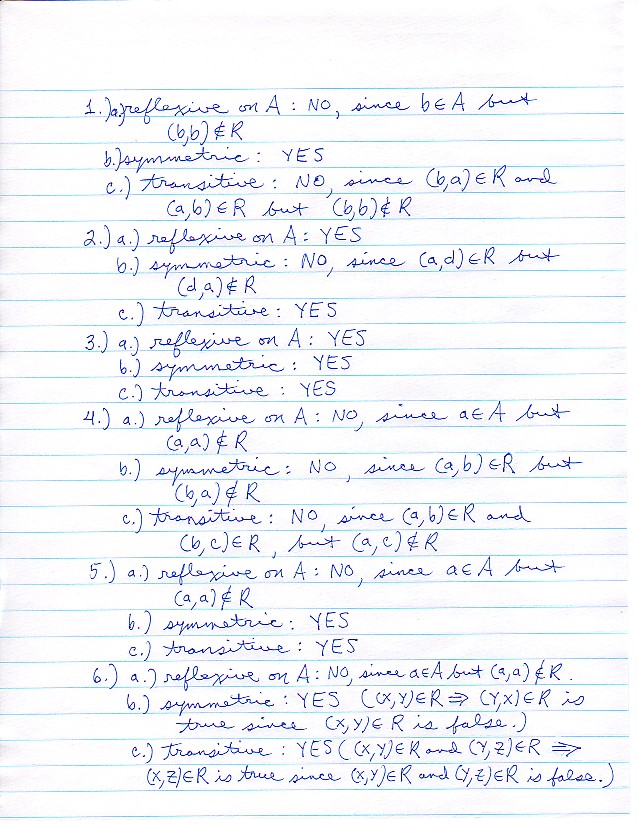 1.) a.) reflexive on A : NO, since b∈A but
(b,b)∉R
b.) symmetric : YES
c.) transitive : NO, since (b,a)∈R and
(a,b)∈R but (b,b)∉R
2.) a.) reflexive on A : YES
b.) symmetric : NO, since (a,d)∈R but
(d,a)∉R
c.) transitive : YES
3.) a.) reflexive on A : YES
b.) symmetric : YES
c.) transitive : YES
4.) a.) reflexive on A : NO, since a∈A but
(a,a)∉R
b.) symmetric : NO, since (a,b)∈R but
(b,a)∉R
c.) transitive : NO, since (a,b)∈R and
(b,c)∈R, but (a,c)∉R
5.) a.) reflexive on A : NO, since a∈A but
(a,a)∉R
b.) symmetric : YES
c.) transitive : YES
6.) a.) reflexive on A : NO, since a∈A but (a,a)∉R.
b.) symmetric : YES ((X,Y)∈R ⇒ (Y,X)∈R is
true since (X,Y)∈R is false.)
c.) transitive : YES ((X,Y)∈R and (Y,Z)∈R ⇒
(X,Z)∈R is true since (X,Y)∈R and (Y,Z)∈R is false.)